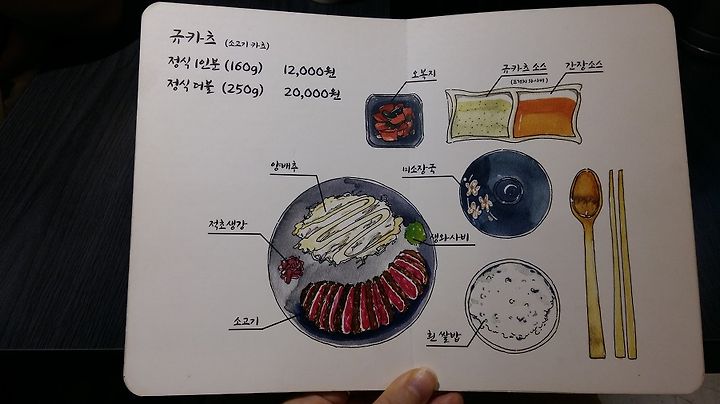 규카츠 (소고기 카츠)
정식 1인분 (160g) 12,000원
정식 더블 (250g) 20,000원
오복지
규카츠 소스
간장소스
양배추
미소장국
적초생강
생와사비
소고기
흰 쌀밥